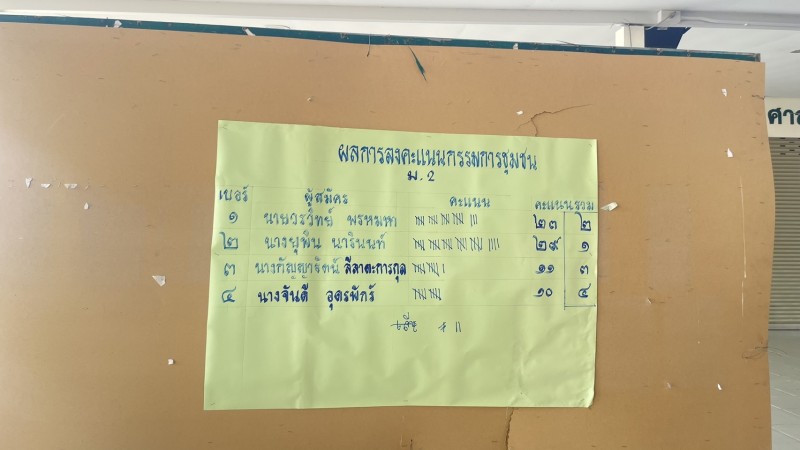 ผลการลงคะแนนกรรมการชุมชน
ม.2
เบอร์ ผู้สมัคร คะแนน คะแนนรวม
๑ นายวรวิทย์ พรหมหา ๒๓ ๒
๒ นางยุพิน นารินนท์ ๒๙ ๑
๓ นางกัญญารัตน์ ลีลาตะการกุล ๑๑ ๓
๔ นางจันดี อุดรพักร์ ๑๐ ๔
ศาล